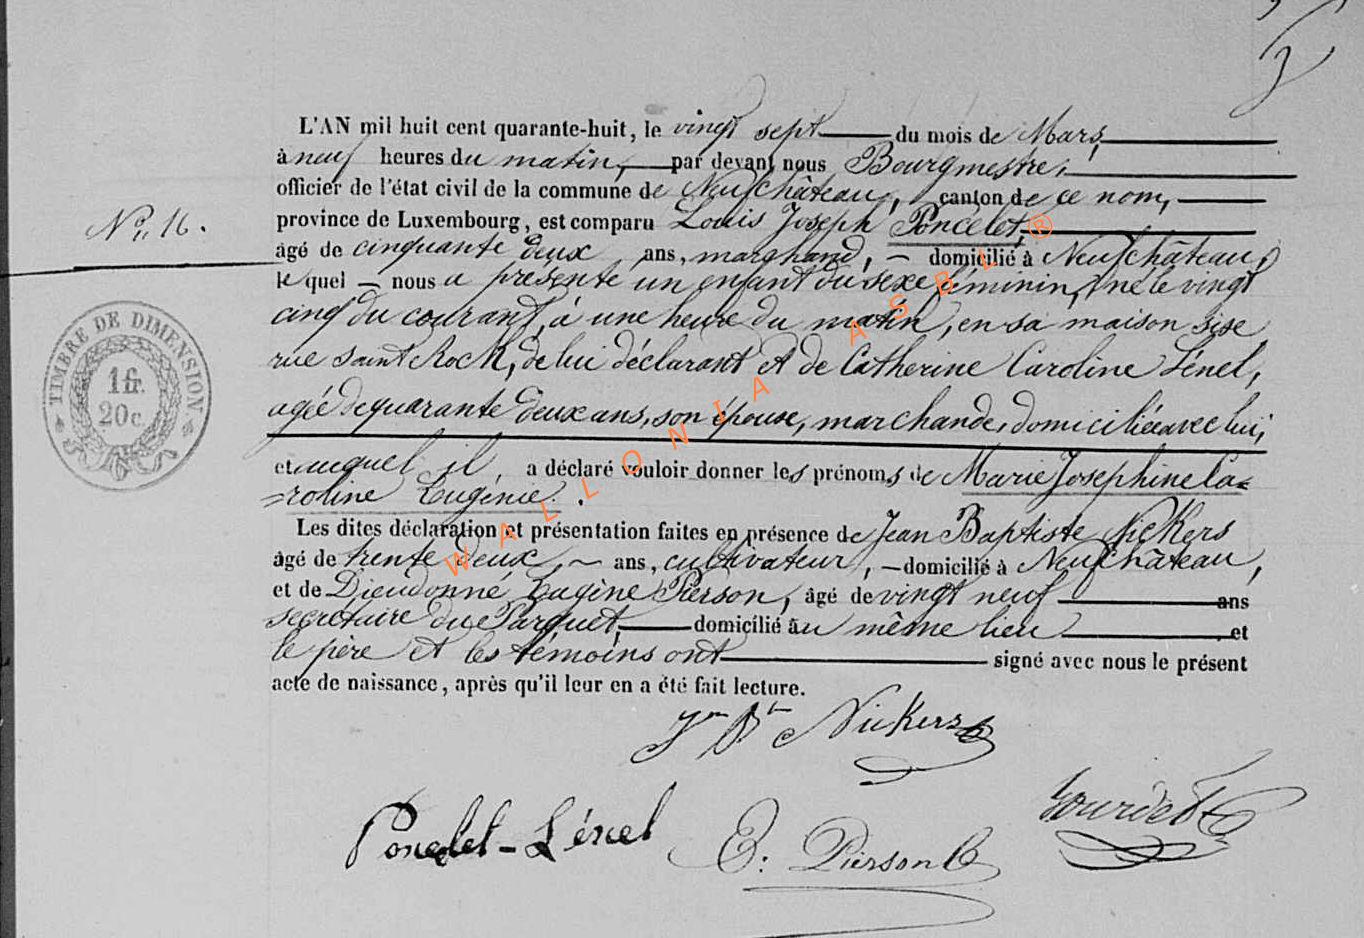 L'AN mil huit cent quarante-huit, le vingt sept du mois de Mars,
à neuf heures du matin, par devant nous Bourgmestre,
officier de l'état civil de la commune de Neufchâteau, canton de ce nom,
province de Luxembourg, est comparu Louis Joseph Poncelet,
âgé de cinquante deux ans, marchand, domicilié à Neufchâteau,
le quel nous a présenté un enfant du sexe féminin, né le vingt
cinq du courant, à une heure du matin, en sa maison sise
rue Saint Roch, de lui déclarant et de Catherine Caroline Lénel,
agée de quarante deux ans, son épouse, marchande, domiciliée avec lui,
et auquel il a déclaré vouloir donner les prénoms de Marie Josephine Ca=
=roline Eugénie.
Les dites déclaration et présentation faites en présence de Jean Baptiste Nickers
âgé de trente deux, ans, cultivateur, domicilié à Neufchâteau,
et de Dieudonné Eugène Pierson, âgé de vingt neuf ans
secrétaire du Parquet, domicilié au même lieu et
le père et les témoins ont signé avec nous le présent
acte de naissance, après qu'il leur en a été fait lecture.
N° 16.
TIMBRE DE DIMENSION
1 fr.
20 c.
Jn Bte Nickers
Poncelet-Lénel
E. Pierson
Gourdet
WALLONIA ASBL ®